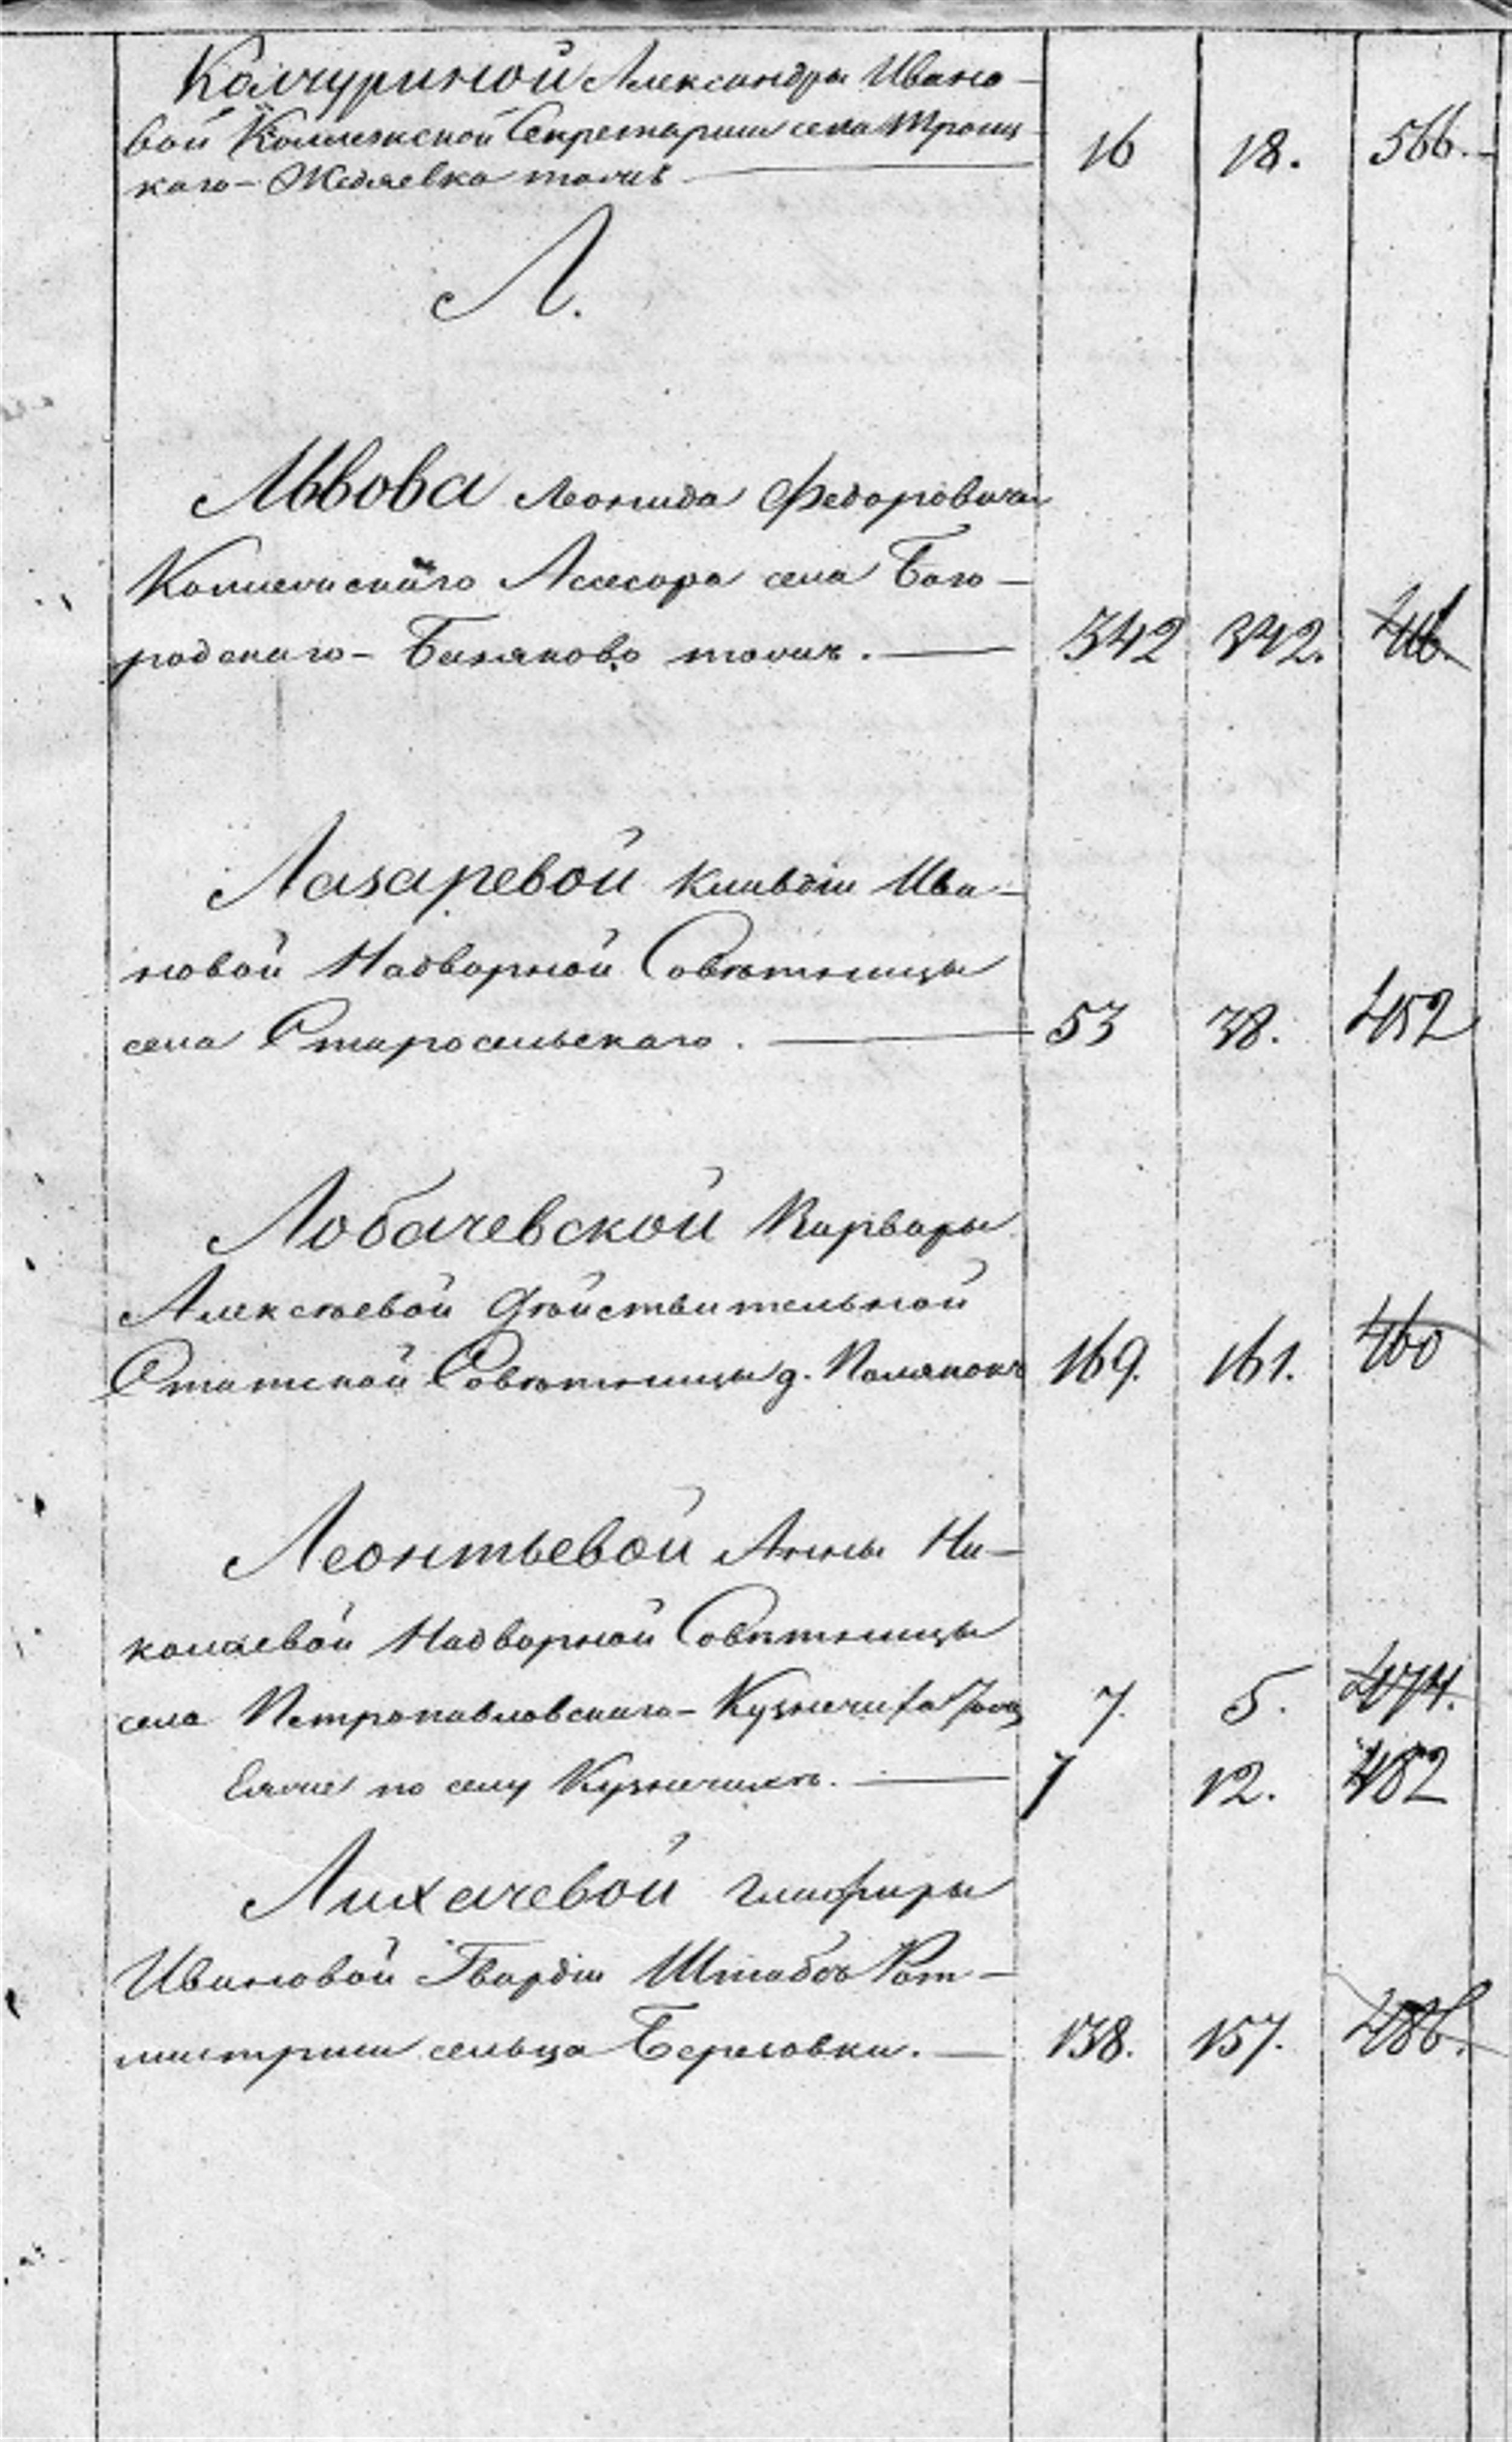 Колчуриной Александры Ивано-
вой Коллежской Секретарши села Троиц
каго - Жедяевка тожъ 16 18. 566.
Л.
Львова Леонида Федоровича
Коллежскаго Ассесора села Бого-
родскаго - Биляково тожъ. 342 342. 416.
Лазаревой Клавдіи Ива-
новой Надворной Совѣтницы
села Старосельскаго. 53 38. 452
Лобачевской Варвары
Алексѣевой Дѣйствительной
Статской Совѣтницы д. Полянокъ 169. 161. 460
Леонтьевой Анны Ни-
колаевой Надворной Совѣтницы
села Петропавловскаго - Кузнечиха тожъ 7. 5. 474.
Еяже по селу Кузнечихѣ. 7 12. 482
Лихачевой Глафиры
Ивановой Гвардіи Штабсъ Рот-
мистрши сельца Береговки. 138. 157. 486.